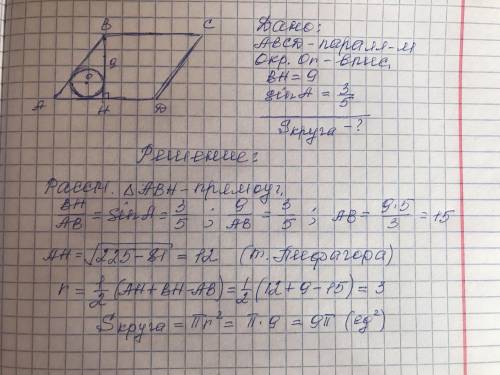 B C
9
O
A H D
Дано:
ABCD - паралл-м
Окр. Or - впис.
BH = 9
sinA = 3/5
Sкруга - ?
Решение:
Рассм. △ABH - прямоуг.
BH/AB = sinA = 3/5 ; 9/AB = 3/5 ; AB = 9·5/3 = 15
AH = √225-81 = 12 (т. Пифагора)
r = 1/2 (AH + BH - AB) = 1/2 (12 + 9 - 15) = 3
Sкруга = πr² = π · 9 = 9π (ед²)